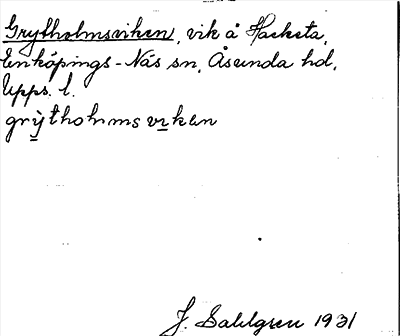 Grytholmsviken, vik å Hacksta,
Enköpings-Näs sn, Åsunda hd,
Upps. l.
grỳtholmsvi̱ken
J. Sahlgren 1931